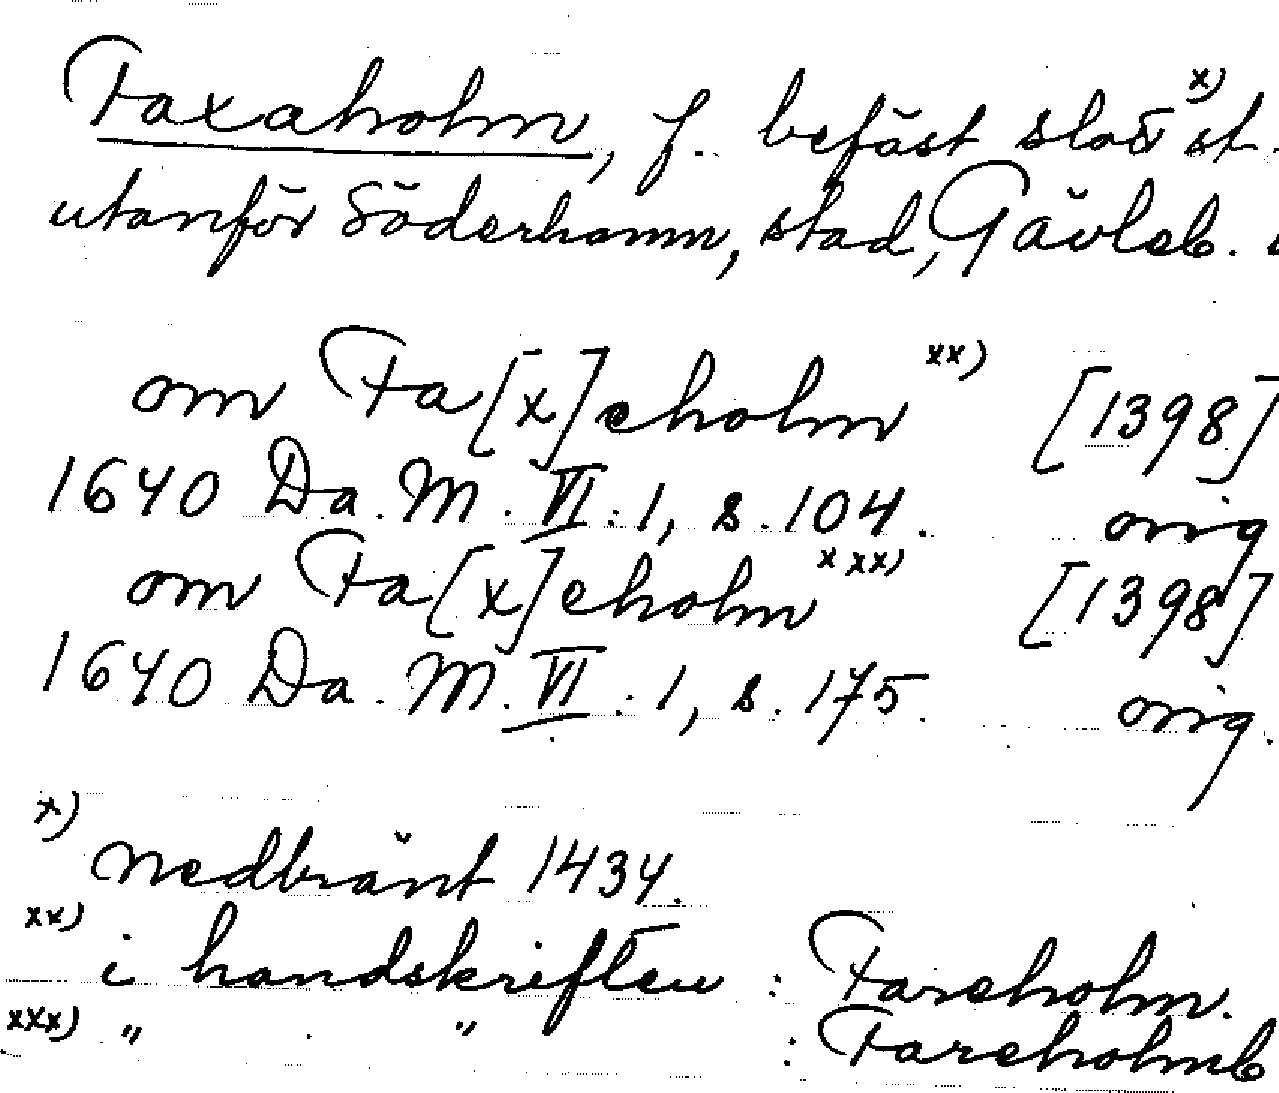 Faxaholm, f. befäst slott x) st.
utanför Söderhamn, stad, Gävleb.
om Fa[x]eholm xx) [1398]
1640 Da. M. VI: 1, s. 104. orig
om Fa[x]eholm xxx) [1398]
1640 Da. M. VI: 1, s. 175. orig.
x) Nedbränt 1434.
xx) i handskriften : Fareholm.
xxx) " " : Fareholmb